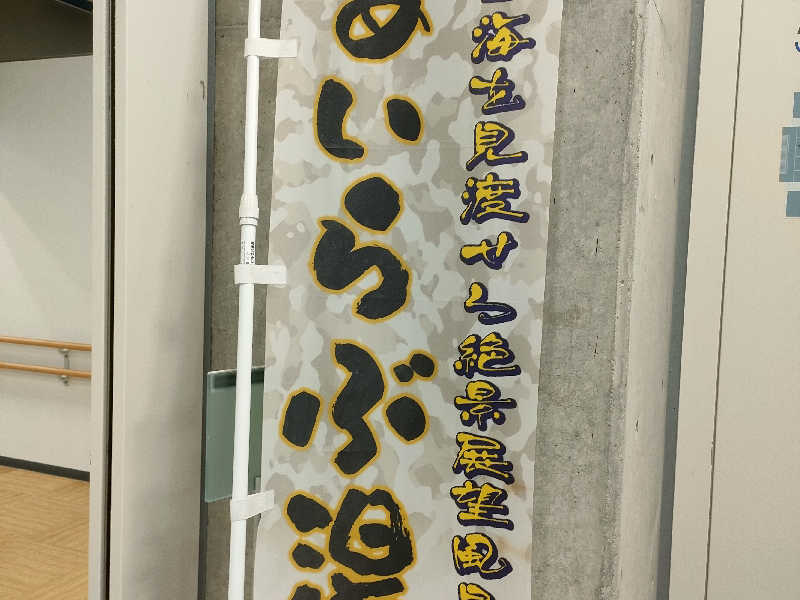 海を見渡せる絶景展望風
あいらぶ温